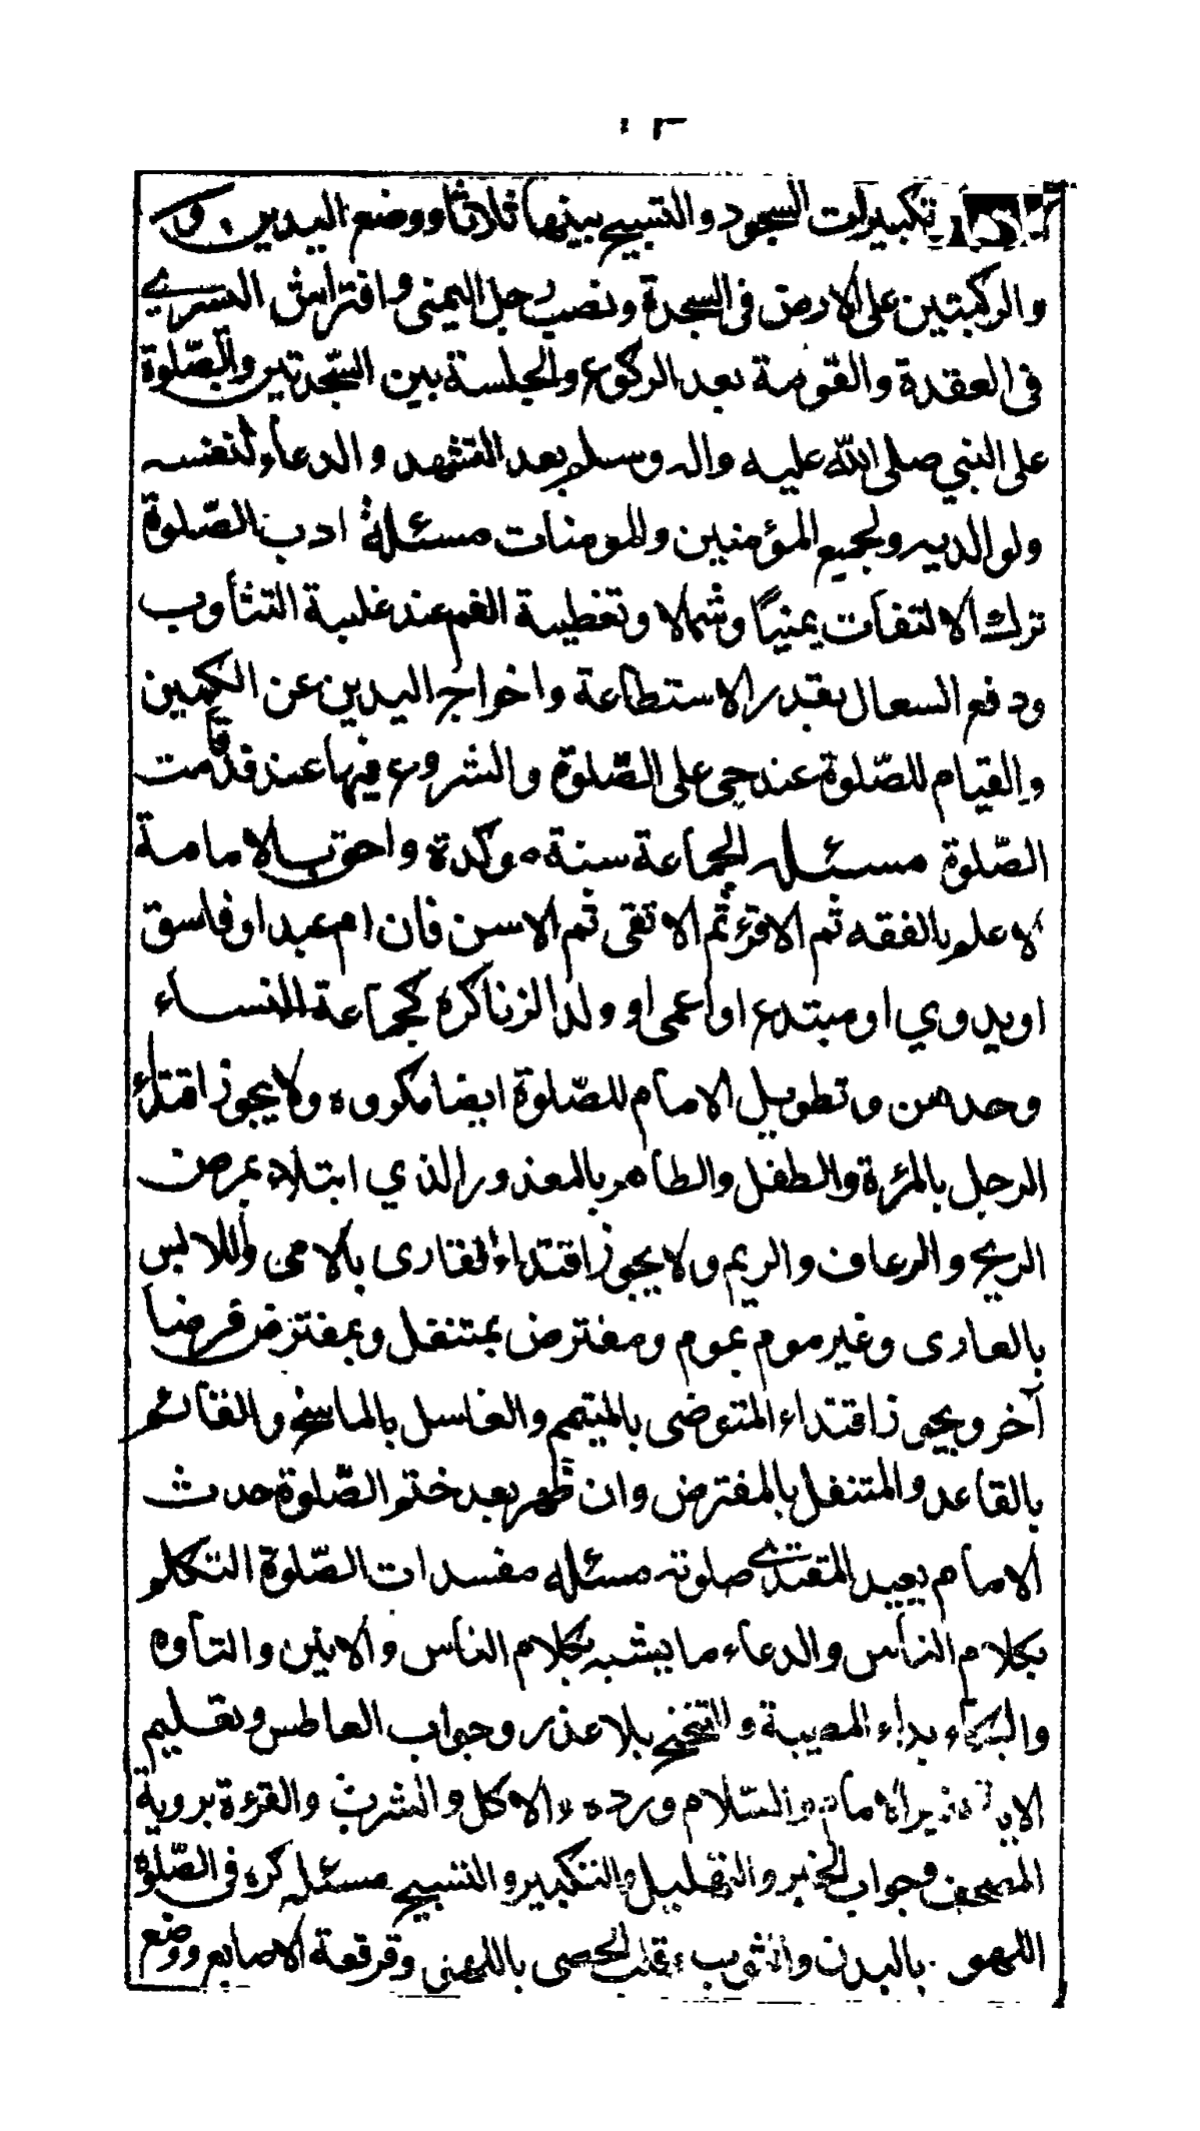 تكبيرات السجود والتسبيح بينها ثلاثا ووضع اليدين و
والركبتين على الارض في السجدة ونصب رجل اليمنى وافتراش اليسري
في العقدة والقومة بعد الركوع والجلسة بين السّجدتين والصّلوة
على النبي صلى الله عليه واله وسلم بعد التشهد والدعاء لنفسه
ولوالديه ولجميع المؤمنين والمومنات مسئلة ادب الصّلوة
ترك الالتفات يمنيًا وشمالا وتغطية الفم عند غلبة التثأوب
ودفع السعال بقدر الاستطاعة واخراج اليدين عن الكمين
والقيام للصّلوة عند حي على الصّلوة والشروع فيها عند قد قامت
الصّلوة مسئله الجماعة سنة موكدة واحق بالامامة
الاعلم بالفقه ثم الاقرء ثم الاتقى ثم الاسن فان ام عبد او فاسق
او بدوي او مبتدع او اعمى او ولد الزنا كره كجماعة النساء
وحدهن وتطويل الامام للصّلوة ايضا مكروه ولا يجوز اقتداء
الرجل بالمرءة والطفل والطاهر بالمعذور الذي ابتلاء بمرض
الريح والرعاف والريم ولا يجوز اقتداء القارى بالامى واللابس
بالعارى وغير موم بموم ومفترض بمتنفل وبمفترض فرضا
آخر ويجوز اقتداء المتوضى بالمتيمم والغاسل بالماسح والقائم
بالقاعد والمتنفل بالمفترض وان ظهر بعد ختم الصّلوة حدث
الامام يعيد المقتدي صلوته مسئله مفسدات الصّلوة التكلم
بكلام الناس والدعاء ما يشبه بكلام الناس والانين والتاوه
والبكاء بداء المصيبة والتنحنح بلا عذر وجواب العاطس وتعليم
الامام والسّلام ورده والاكل والشرب والقرءة بروية
المصحف وجواب الخبر والتهليل والتكبير والتسبيح مسئله كره في الصّلوة
اللهو بالبدن والثوب وقلب الحصى باللهى وقرقعة الاصابع ووضع